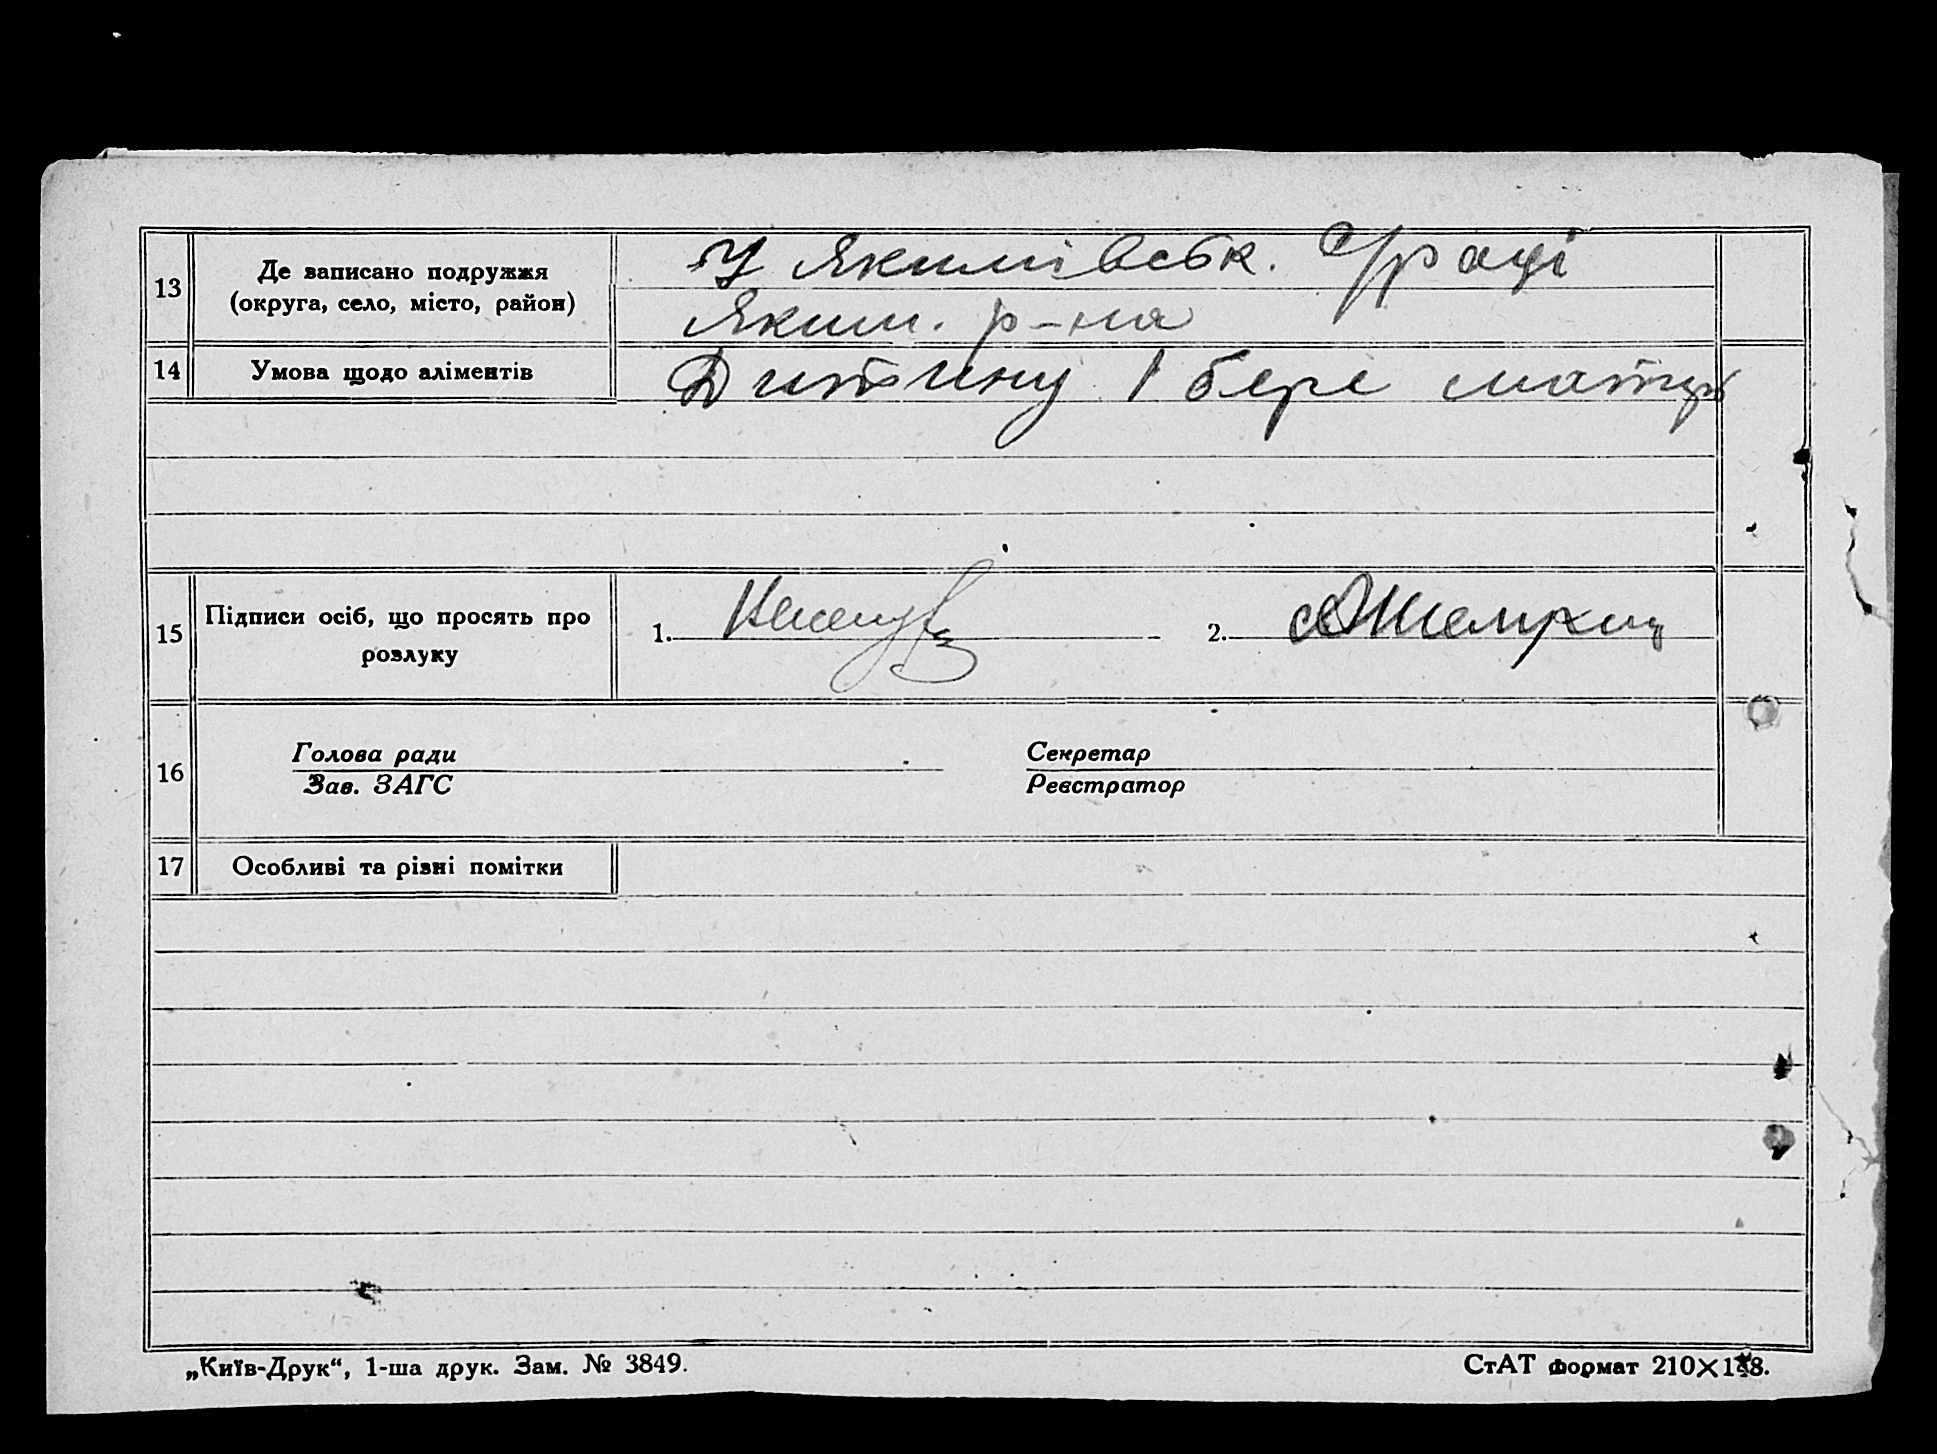 13 Де записано подружжя У Якимівськ. с/раді
(округа, село, місто, район) Яким. р-на
14 Умова щодо аліментів Дитину 1 бере матір
15 Підписи осіб, що просять про
розлуку 1. 2.
16 Голова ради Секретар
Зав. ЗАГС Реєстратор
17 Особливі та різні помітки
„Київ-Друк“, 1-ша друк. Зам. № 3849. СтАТ формат 210×148.